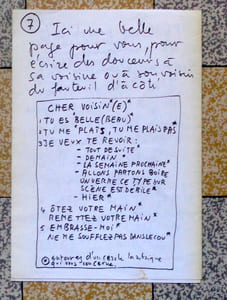 7
Ici une belle
page pour vous, pour
écrire des douceurs à
sa voisine ou à son voisin
de fauteuil d'à côté
CHER VOISIN*(E)*
1 TU ES BELLE (BEAU)*
2 TU ME PLAIS, TU ME PLAIS PAS*
3 JE VEUX TE REVOIR:
- TOUT DE SUITE*
- DEMAIN*
- LA SEMAINE PROCHAINE*
- ALLONS PARTONS BOIRE
UN VERRE CE TYPE SUR
SCÈNE EST DEBILE*
- HIER*
4 ÔTEZ VOTRE MAIN*
REMETTEZ VOTRE MAIN*
5 EMBRASSE-MOI*
NE ME SOUFFLEZ PAS DANS LE COU*
* entourer d'un cercle la
qui vous concerne.